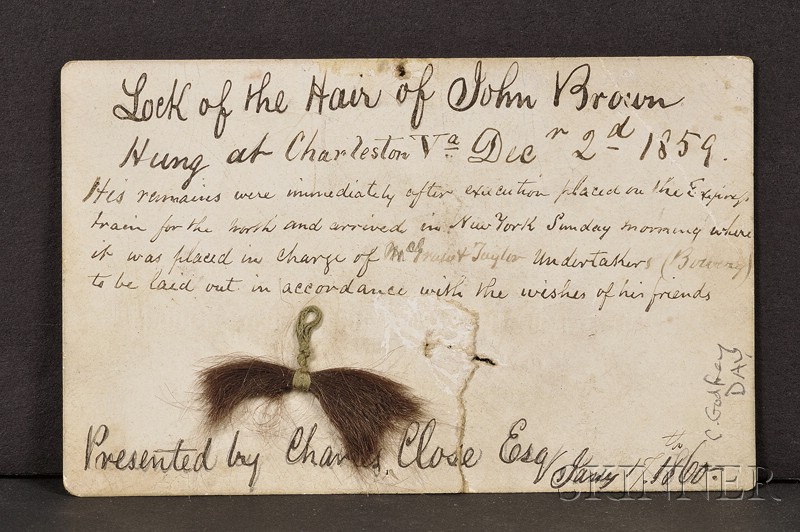 Lock of the Hair of John Brown
Hung at Charleston Va Decr 2d 1859.
His remains were immediately after execution placed on the Express
train for the north and arrived in New York Sunday morning where
it was placed in charge of McGraw & Taylor Undertakers (Bowery)
to be laid out in accordance with the wishes of his friends
Presented by Charles Close Esq
Jany th 1860.
C. Godfrey
DAY
SKINNER